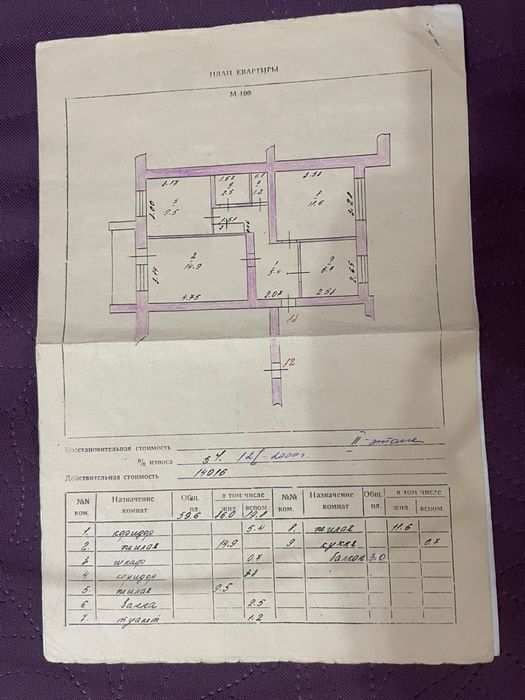 ПЛАН КВАРТИРЫ
М-100
3.17
1.62
3.51
5
9.5
6
2.5
7
1.2
8
11.6
3.00
3.20
1.51
2
14.9
1
5.4
9
6.7
3.14
2.65
4.75
2.07
2.51
11
12
Восстановительная стоимость
II-этаж
% износа 5%. 12/-2000г.
Действительная стоимость 14016
№№ ком. Назначение комнат Общ. пл. в том числе жил. вспом. №№ ком. Назначение комнат Общ. пл. в том числе жил. вспом.
59.6 36.0
1. коридор 5.4 8. жилая 11.6
2. жилая 14.9 9. кухня
3 шкаф 0.7 балкон 3.0
4 коридор
5 жилая 9.5
6 ванна 2.5
7 туалет 1.2